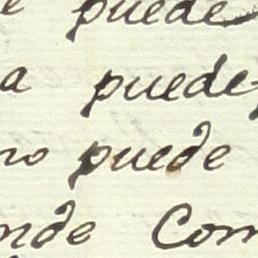 e puede
a puede
no puede
nde Com